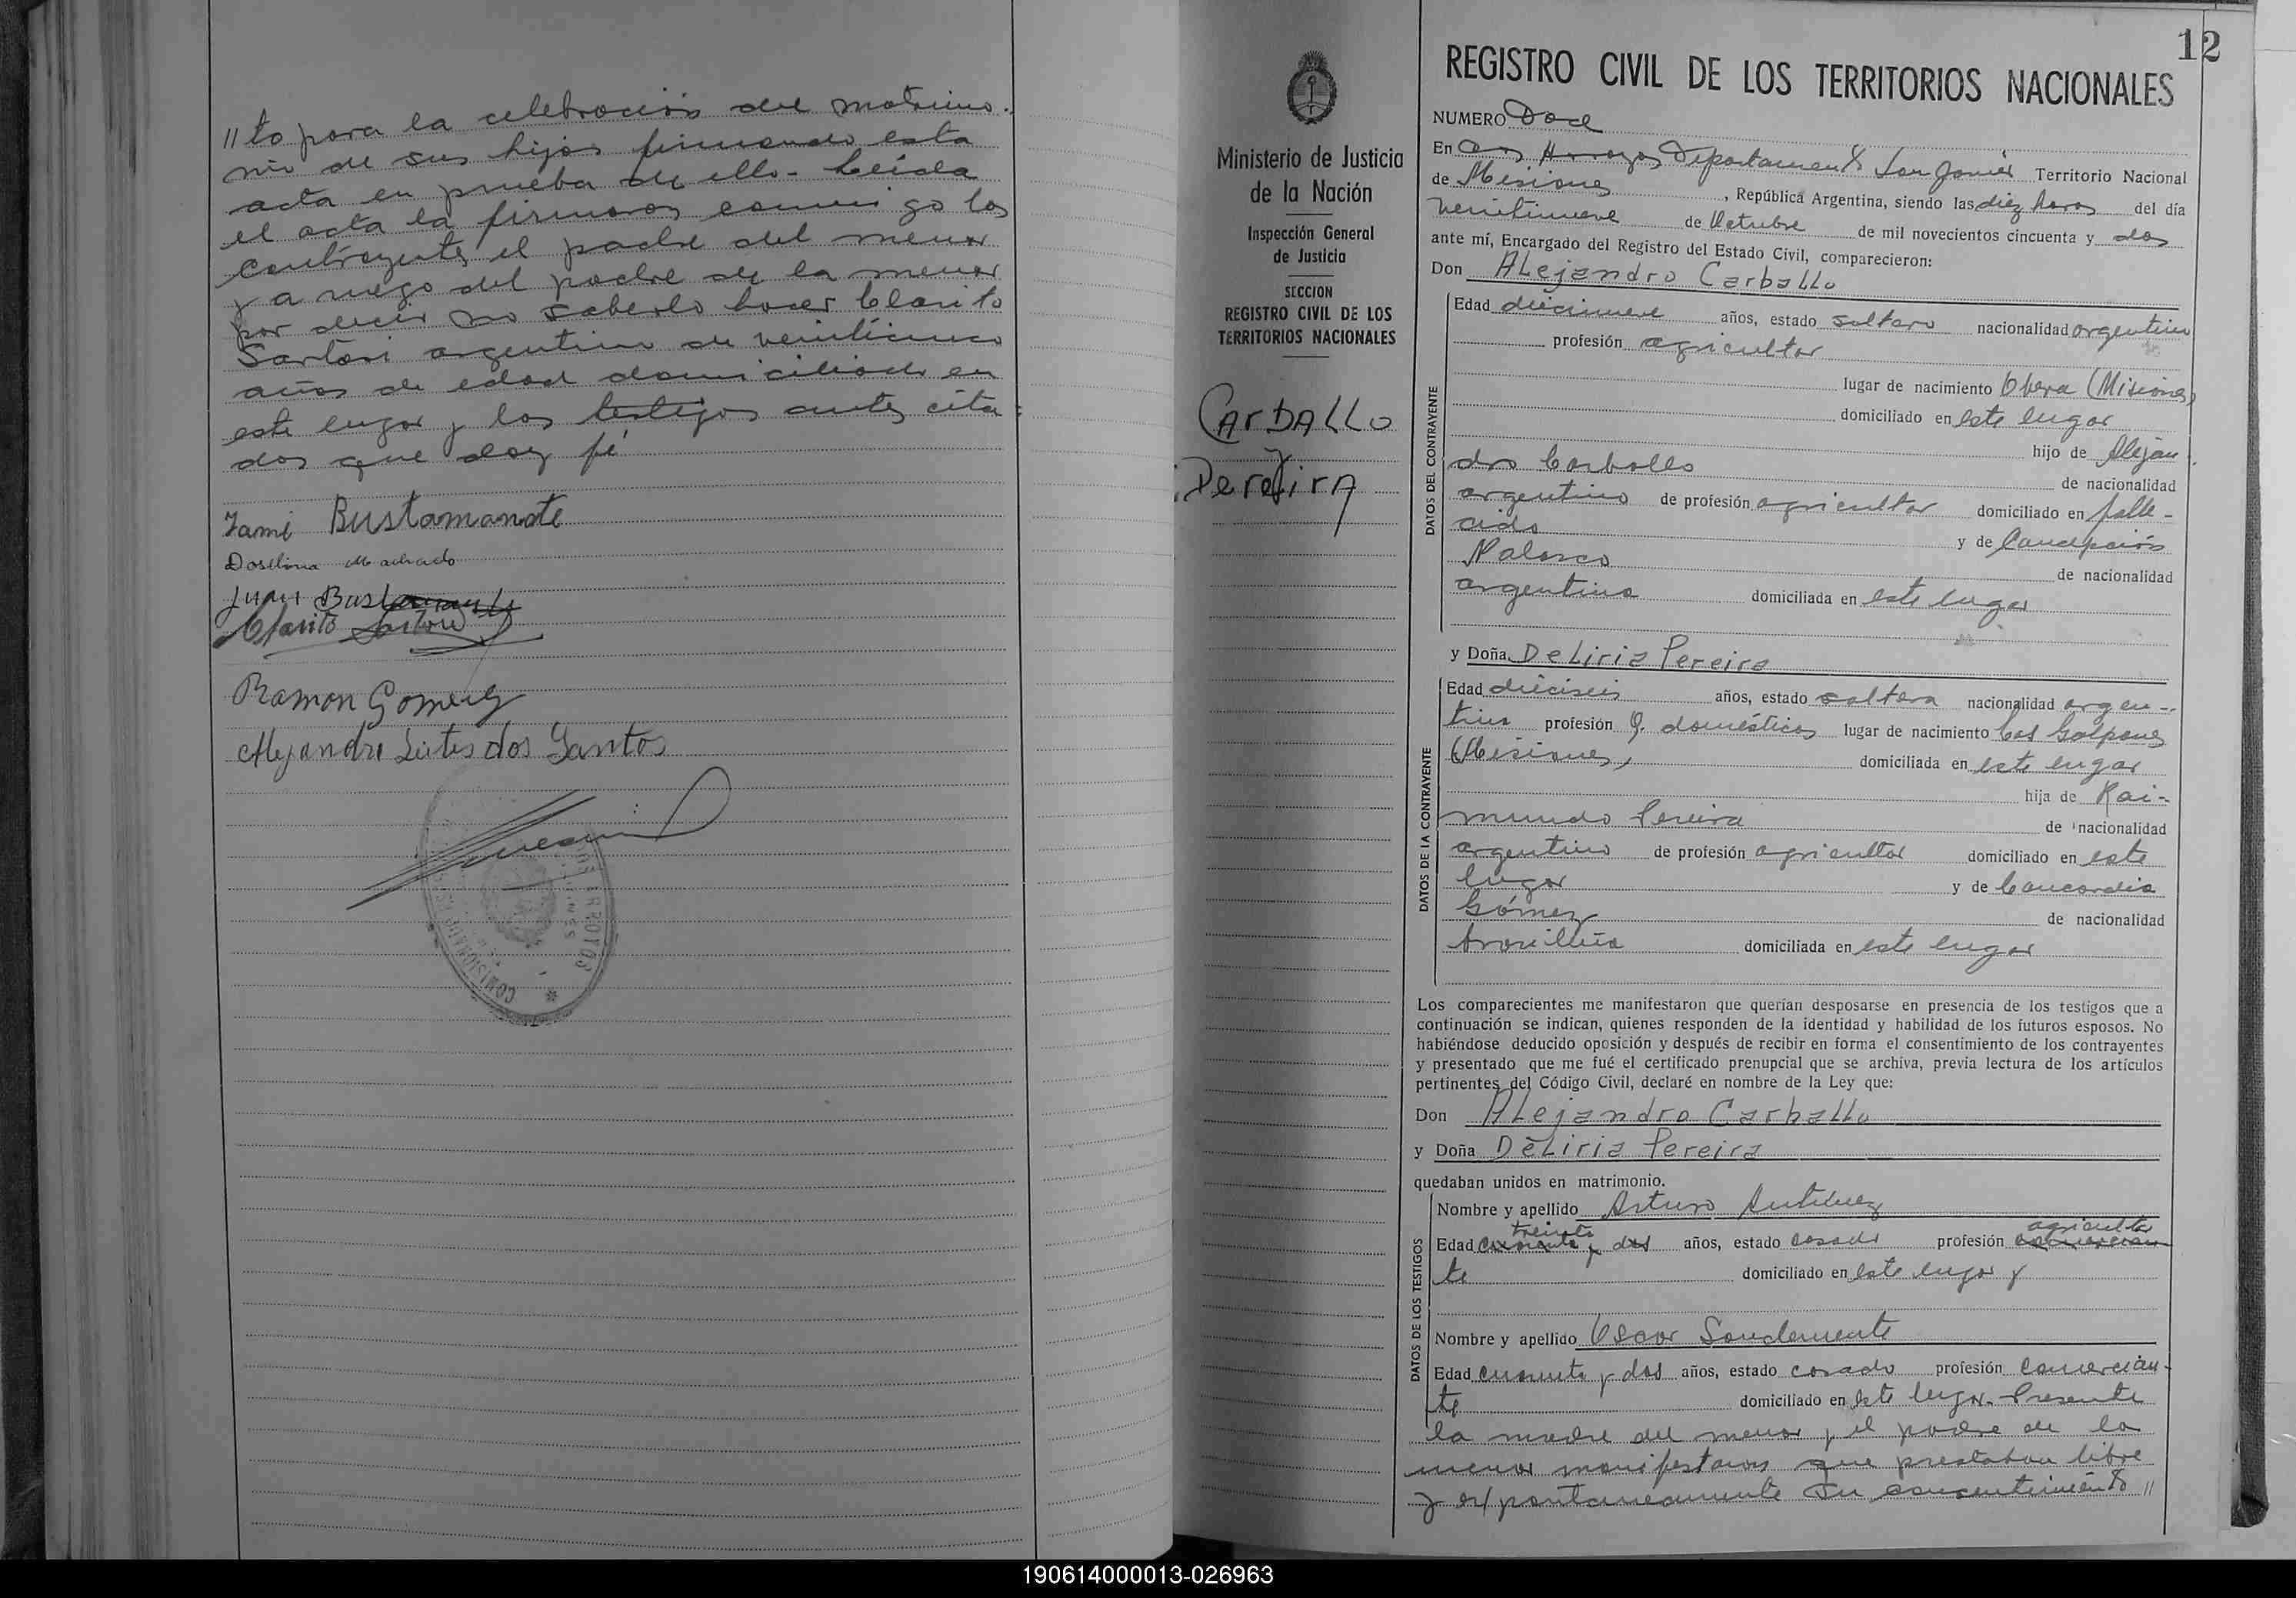 //to para la celebración del matrimo-
nio de sus hijos firmando esta
acta en prueba de ello- Leída
el acta la firmaron conmigo los
contrayentes el padre del menor
y a ruego del padre de la menor
por decir no saberlo hacer Clarito
Sartori argentino de veinticinco
años de edad domiciliado en
este lugar y los testigos antes cita
dos que doy fé
Bustamante
Doselina Machado
Juan Bustamante
Clarito Sartori
Ramon Gomez
Alejandro dos Santos
COMISIONADO
ARROYOS
MISIONES
12
REGISTRO CIVIL DE LOS TERRITORIOS NACIONALES
Ministerio de Justicia
de la Nación
Inspección General
de Justicia
SECCION
REGISTRO CIVIL DE LOS
TERRITORIOS NACIONALES
CArbALLO
y
PereirA
NUMERO Doce
En Dos Arroyos Departamento San Javier Territorio Nacional
de Misiones, República Argentina, siendo las diez horas del día
veintinueve de Octubre de mil novecientos cincuenta y dos
ante mí, Encargado del Registro del Estado Civil, comparecieron:
Don ALejandro CarbaLLo
DATOS DEL CONTRAYENTE
Edad diecinueve años, estado soltero nacionalidad argentino
profesión agricultor
lugar de nacimiento Obera (Misiones)
domiciliado en este lugar
hijo de Alejan
dro Carballo de nacionalidad
argentino de profesión agricultor domiciliado en falle-
cido y de Concepción
de nacionalidad
argentina domiciliada en este lugar
y Doña DeLiria Pereira
DATOS DE LA CONTRAYENTE
Edad dieciseis años, estado soltera nacionalidad argen-
tina profesión Q. domésticos lugar de nacimiento Los Galpones
(Misiones) domiciliada en este lugar
hija de Rai-
mundo Pereira de nacionalidad
argentino de profesión agricultor domiciliado en este
lugar y de Concordia
Gómez de nacionalidad
brasileña domiciliada en este lugar
Los comparecientes me manifestaron que querían desposarse en presencia de los testigos que a
continuación se indican, quienes responden de la identidad y habilidad de los futuros esposos. No
habiéndose deducido oposición y después de recibir en forma el consentimiento de los contrayentes
y presentado que me fué el certificado prenupcial que se archiva, previa lectura de los artículos
pertinentes del Código Civil, declaré en nombre de la Ley que:
Don ALejandro CarbaLLo
y Doña DeLiria Pereira
quedaban unidos en matrimonio.
DATOS DE LOS TESTIGOS
Nombre y apellido Arturo
treinta agricultor
Edad cuarenta y dos años, estado casado profesión comercian
te domiciliado en este lugar y
Nombre y apellido Oscar Sandemente
Edad cuarenta y dos años, estado casado profesión comercian-
te domiciliado en este lugar- Presente
la madre del menor y el padre de la
menor manifestaron que prestaban libre
y expontaneamente su consentimiento //
190614000013-026963